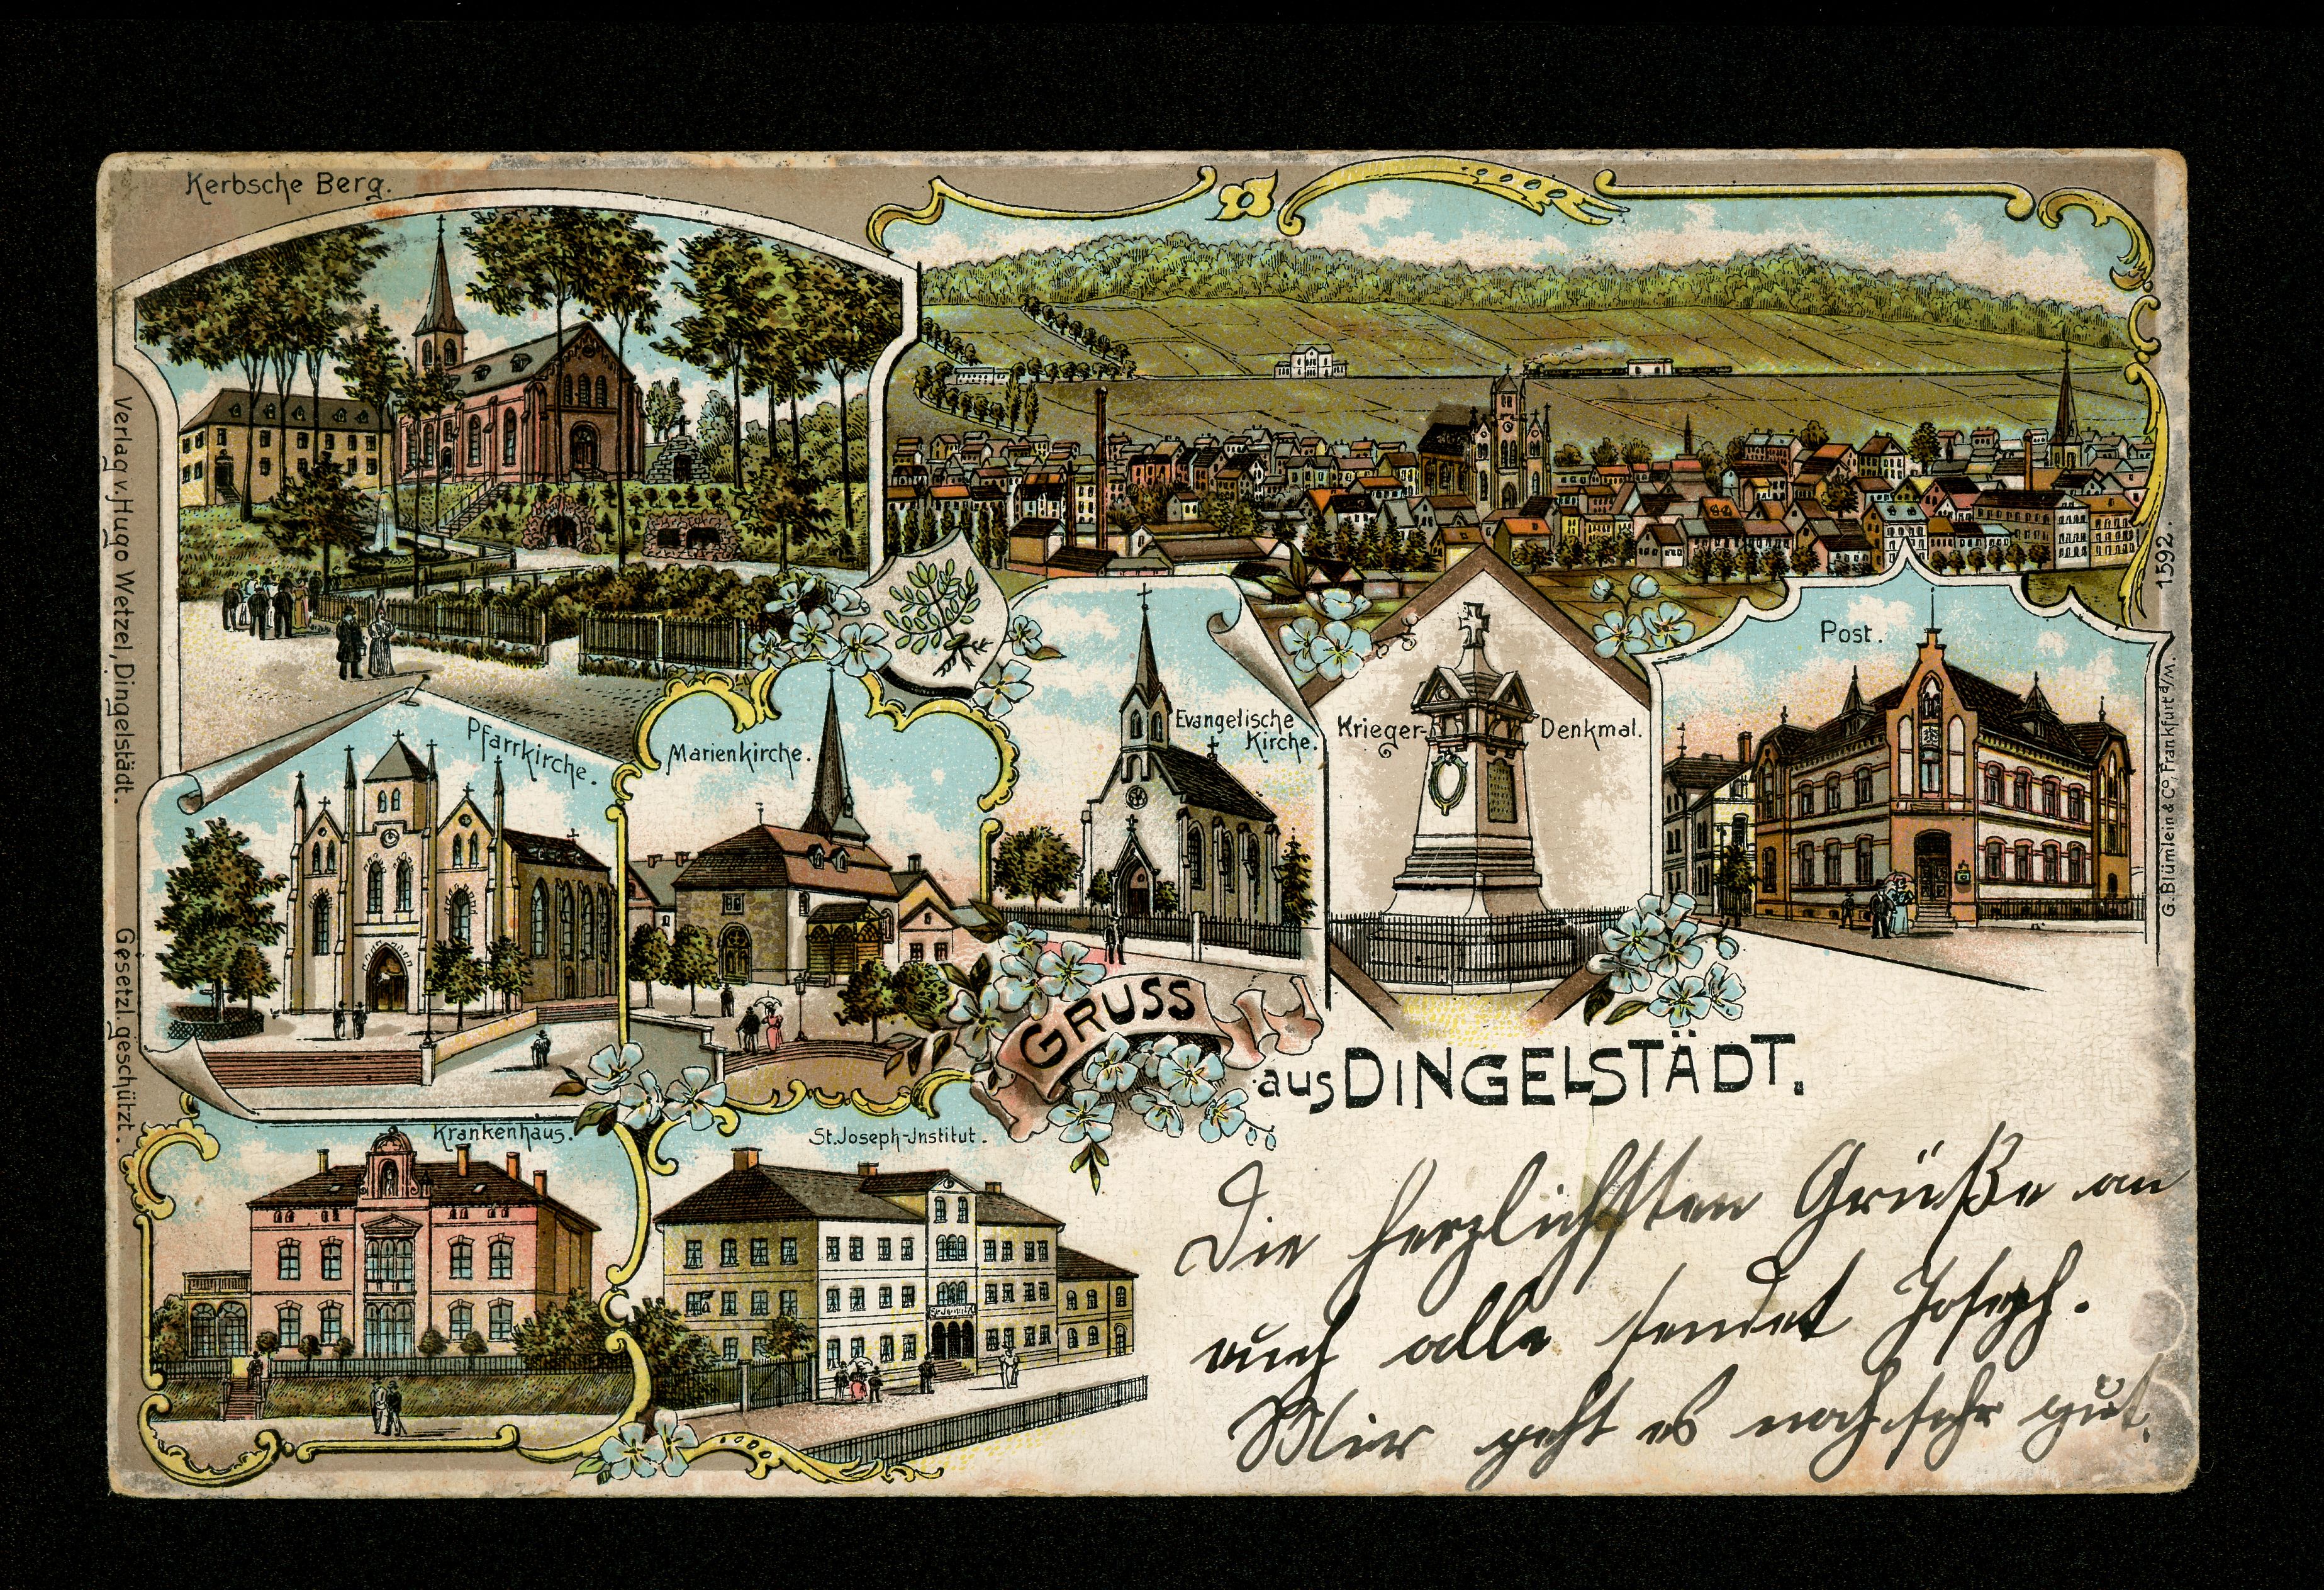 Kerbsche Berg.
Verlag v. Hugo Wetzel, Dingelstädt.
Gesetzl. geschützt.
1592.
Post.
G. Blümlein & Co, Frankfurt a/M.
Pfarrkirche.
Marienkirche.
Evangelische
Kirche.
Krieger-
Denkmal.
GRUSS
aus DINGELSTÄDT.
Krankenhaus.
St. Joseph-Institut.
Die herzlichsten Grüße an
euch alle sendet Joseph.
Mir geht es noch sehr gut.